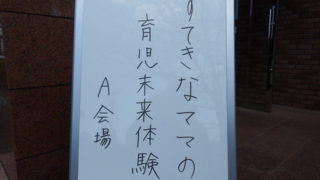 すてきなママの
育児未来体験
A会場